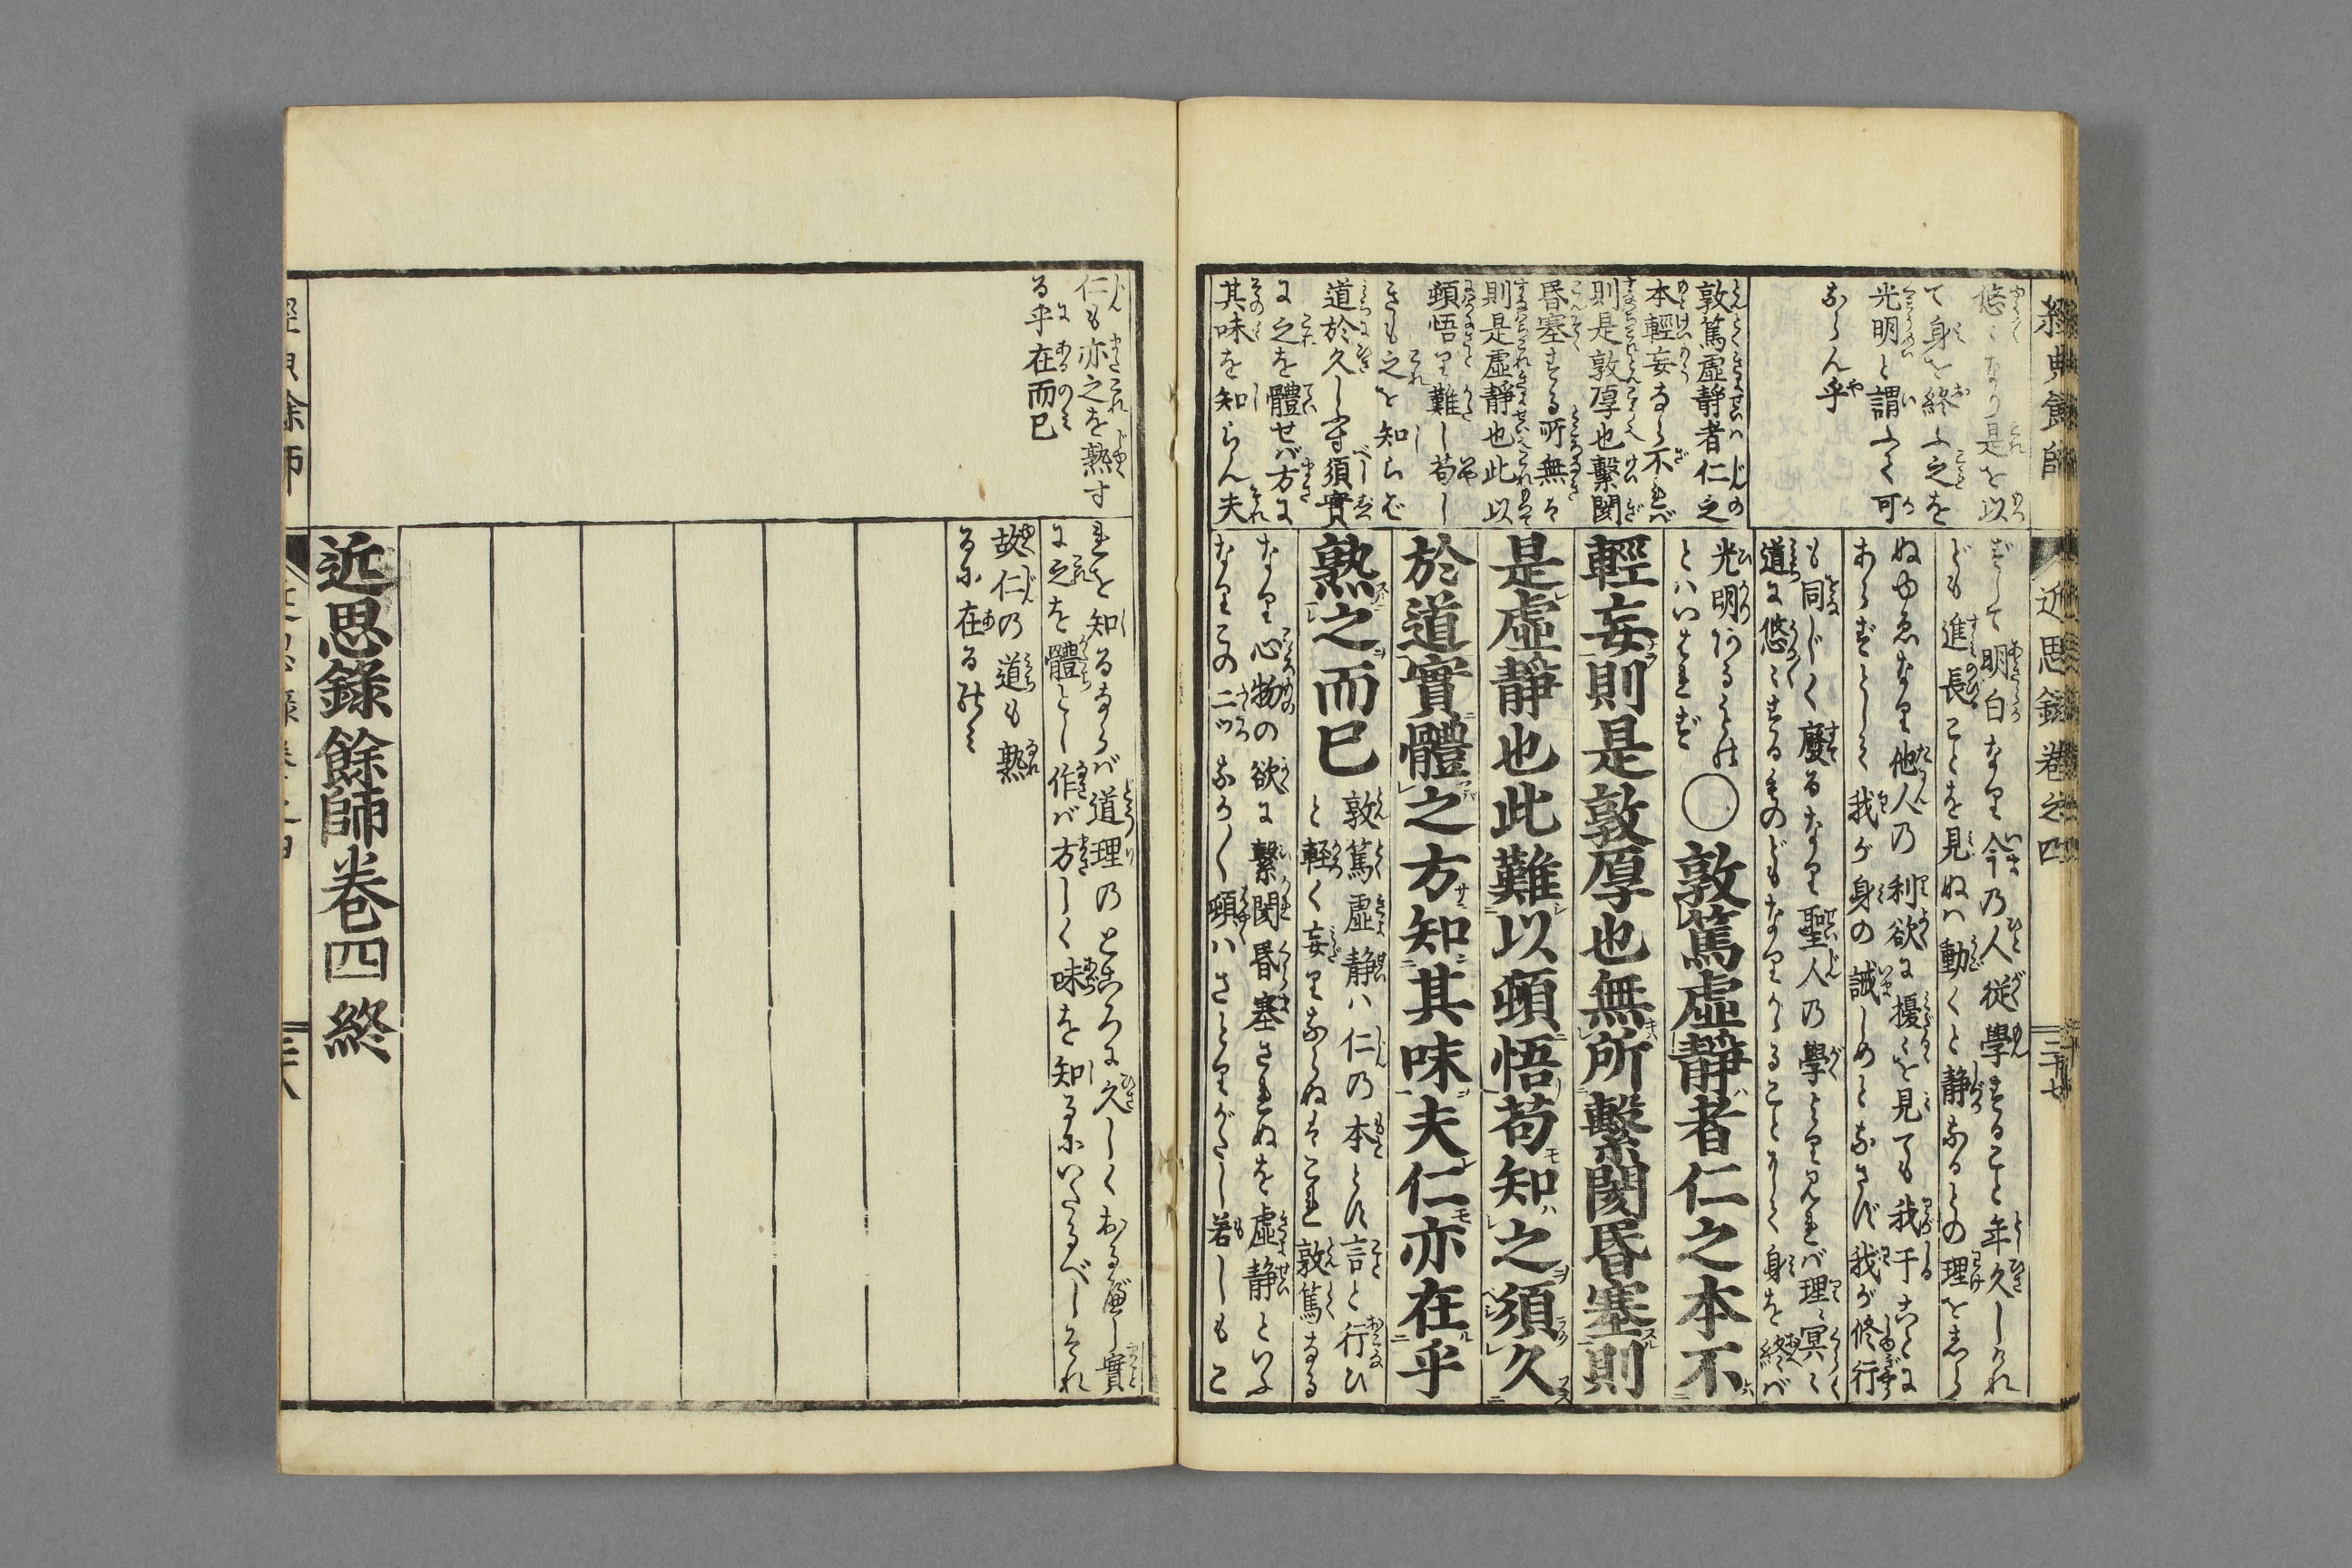 經典餘師
近思錄卷之四
三十七
悠々なり是を以
て身を終ふ之を
光明と謂ふく可
ならん乎
敦篤虚靜者仁之
本輕妄なら不れば
則是敦厚也繫閡
昏塞する所無は
則是虚靜也此以
頓悟し難し苟し
くも之を知らば
道於久しうす須實
に之を體せば方に
其味を知らん夫
ずして明白なり今の人従學すること年久しけれ
ども進長ことを見ぬは動くと静なるとの理をしら
ぬゆゑなり他人の利欲に擾々を見ても我干ことに
あらずとして我が身の誠しめとなさず我が修行
も同じく廢るなり聖人の學より見れば理々冥々
道に悠々するものどもなりかゝることかくて身を終ば
光明あるとは
とはいはれず
〇敦篤虛靜者仁之本不
輕妄則是敦厚也無所繫閡昏塞則
是虛靜也此難以頓悟苟知之須久
於道實體之方知其味夫仁亦在乎
熟之而已
敦篤虚静は仁の本とす言と行ひ
と軽く妄りならぬはこれ敦篤なる
なり心物の欲に繫閡昏塞されぬを虚静といふ
なりこの二ツながら頓はさとりがたし若しもこ
仁も亦之を熟す
るに在る乎而已
れを知るならば道理のところに久しくおるべし實
に之を體とし作ば方しく味を知るにいたるべしそれ
故仁の道も熟
るに在るのミ
近思錄餘師卷四終